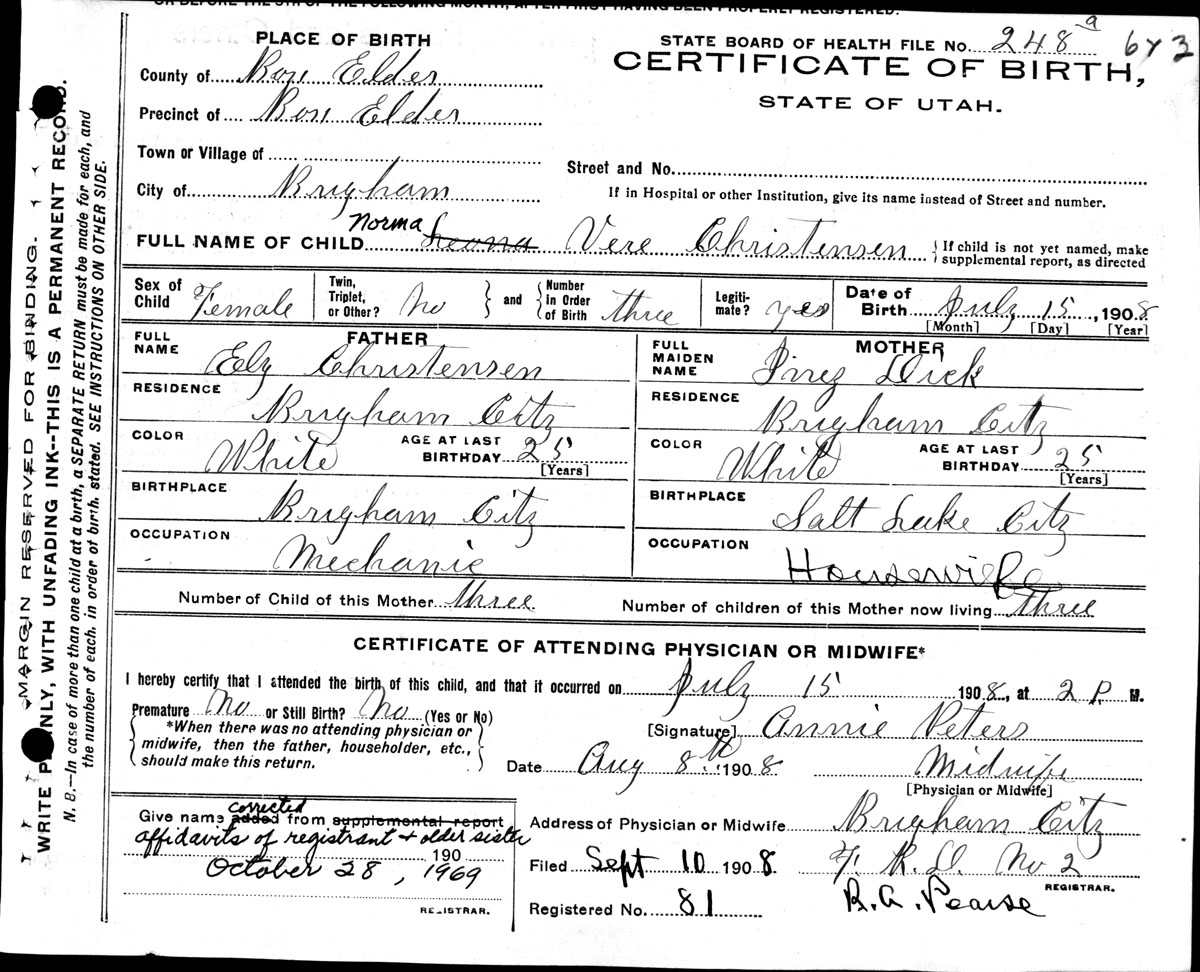 OR BEFORE THE 5TH OF THE FOLLOWING MONTH, AFTER FIRST HAVING BEEN PROPERLY REGISTERED.
PLACE OF BIRTH
STATE BOARD OF HEALTH FILE No. 248 a 643
CERTIFICATE OF BIRTH,
STATE OF UTAH.
County of Box Elder
Precinct of Box Elder
Town or Village of
Street and No.
City of Brigham
If in Hospital or other Institution, give its name instead of Street and number.
Norma
FULL NAME OF CHILD Leona Vere Christensen { If child is not yet named, make supplemental report, as directed
Sex of Child Female Twin, Triplet, or Other? No } and { Number in Order of Birth three Legiti-mate? yes Date of Birth July 15, 1908
[Month] [Day] [Year]
FATHER
FULL NAME Ely Christensen
RESIDENCE Brigham City
COLOR White AGE AT LAST BIRTHDAY 25
[Years]
BIRTHPLACE Brigham City
OCCUPATION Mechanic
MOTHER
FULL MAIDEN NAME Inez Dick
RESIDENCE Brigham City
COLOR White AGE AT LAST BIRTHDAY 25
[Years]
BIRTHPLACE Salt Lake City
OCCUPATION Housewife
Number of Child of this Mother three Number of children of this Mother now living three
CERTIFICATE OF ATTENDING PHYSICIAN OR MIDWIFE*
I hereby certify that I attended the birth of this child, and that it occurred on July 15 1908, at 2 P. M.
Premature No or Still Birth? No (Yes or No)
*When there was no attending physician or
midwife, then the father, householder, etc.,
should make this return.
[Signature] Annie Peters
Date Aug 8th 1908 Midwife
[Physician or Midwife]
corrected
Give name added from supplemental report
affidavits of registrant + older sister
190
October 28, 1969
REGISTRAR.
Address of Physician or Midwife Brigham City
Filed Sept 10 1908 F. R. D. No 2
REGISTRAR.
Registered No. 81 R. A. Pearse
MARGIN RESERVED FOR BINDING.
WRITE PLAINLY, WITH UNFADING INK--THIS IS A PERMANENT RECORD.
N. B.—In case of more than one child at a birth, a SEPARATE RETURN must be made for each, and
the number of each, in order of birth, stated. SEE INSTRUCTIONS ON OTHER SIDE.